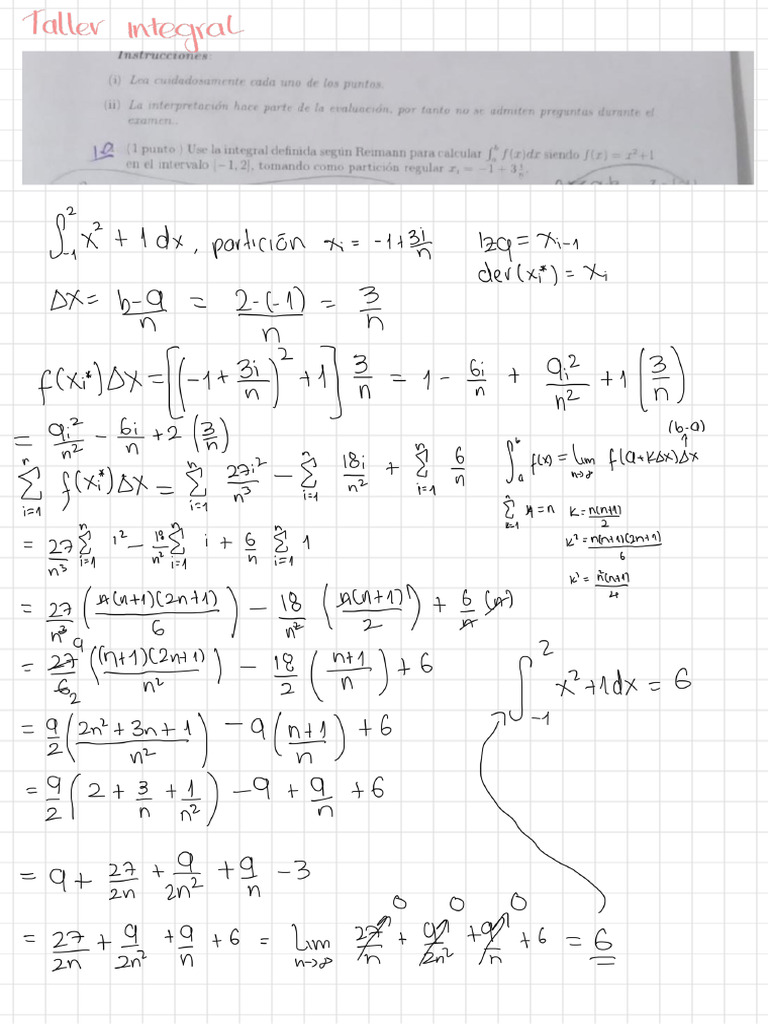 Taller integral
Instrucciones:
(i) Lea cuidadosamente cada uno de los puntos.
(ii) La interpretación hace parte de la evaluación, por tanto no se admiten preguntas durante el
examen..
1º (1 punto ) Use la integral definida según Reimann para calcular ∫_a^b f(x)dx siendo f(x) = x²+1
en el intervalo [−1, 2], tomando como partición regular x_i = −1 + 3 i/n.
∫_{-1}^{2} x² + 1 dx, partición x_i = -1 + 3i/n
Izq = x_{i-1}
der(x_i*) = x_i
Δx = b-a/n = 2-(-1)/n = 3/n
f(x_i*)Δx = [(-1 + 3i/n)² + 1] 3/n = 1 - 6i/n + 9i²/n² + 1 (3/n)
= 9i²/n² - 6i/n + 2 (3/n)
Σ_{i=1}^{n} f(x_i*)Δx = Σ_{i=1}^{n} 27i²/n³ - Σ_{i=1}^{n} 18i/n² + Σ_{i=1}^{n} 6/n
(b-a)
∫_a^b f(x) = lim_{n→∞} f(a+kΔx)Δx
= 27/n³ Σ_{i=1}^{n} i² - 18/n² Σ_{i=1}^{n} i + 6/n Σ_{i=1}^{n} 1
k = n(n+1)/2
k² = n(n+1)(2n+1)/6
= 27/n³ (n(n+1)(2n+1)/6) - 18/n² (n(n+1)/2) + 6/n (n)
= 27/6 9/2 ((n+1)(2n+1)/n²) - 18/2 (n+1/n) + 6
∫_{-1}^{2} x²+1dx = 6
= 9/2 (2n² + 3n + 1/n²) - 9 (n+1/n) + 6
= 9/2 (2 + 3/n + 1/n²) - 9 + 9/n + 6
= 9 + 27/2n + 9/2n² + 9/n - 3
= 27/2n + 9/2n² + 9/n + 6 = lim_{n→∞} 27/n + 9/2n² + 9/n + 6 = 6
0 0 0